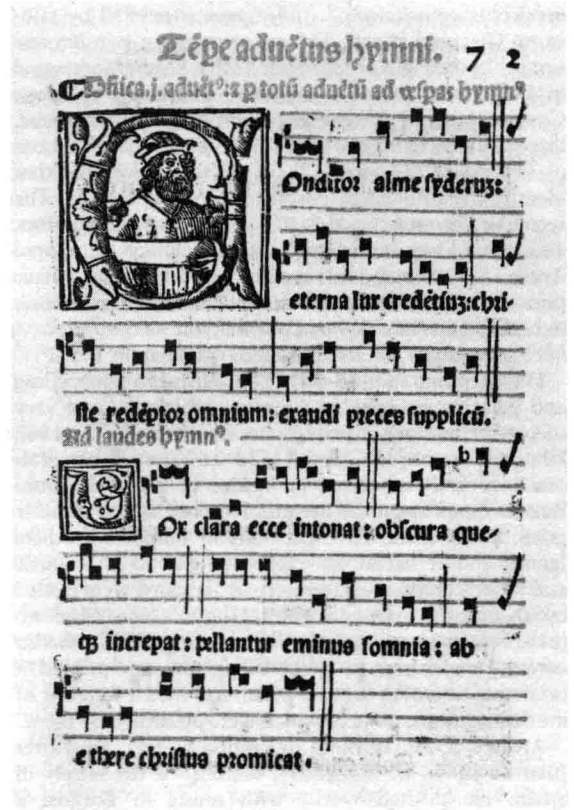 Tēpe aduētus hymni. 7 2
Dñica .j. aduēt⁹: ⁊ ꝑ totū aduētū ad vesꝑas hymn⁹
COnditor alme syderuꝫ:
eterna lux credētiuꝫ: chri-
ste redēptor omnium: exaudi preces supplicū.
Ad laudes hymn⁹.
VOx clara ecce intonat: obscura que-
qꝫ increpat: pellantur eminus somnia: ab
e there christus promicat.